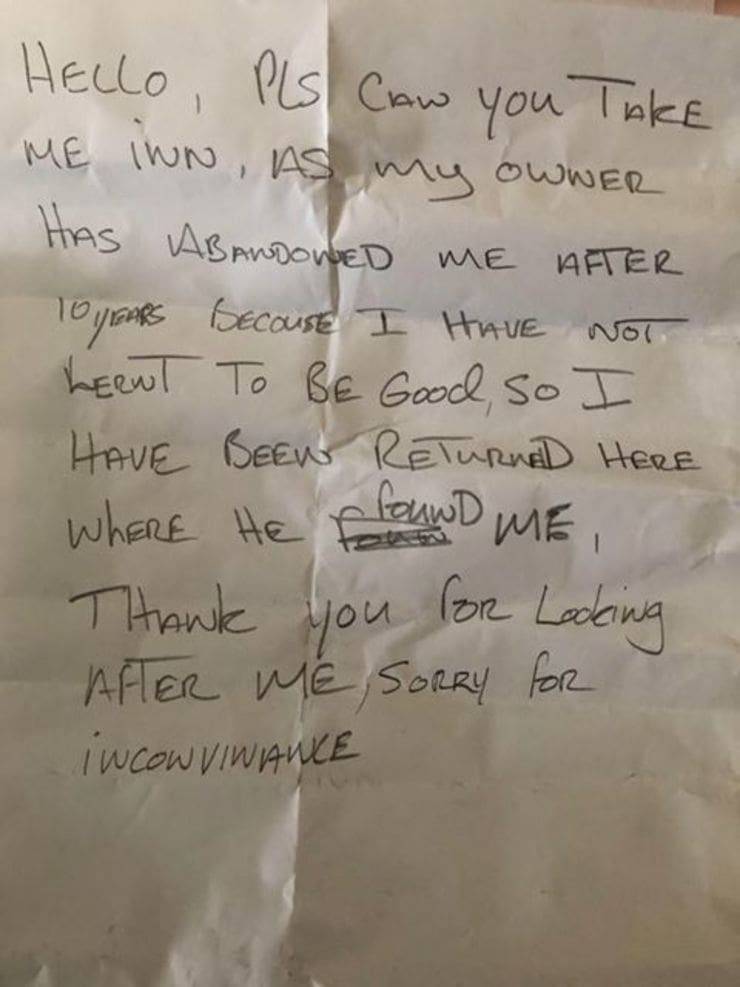 HELLO, PLS CAN YOU TAKE
ME INN, AS my OWNER
HAS ABANDONED ME AFTER
10 yEARS BECOUSE I HAVE NOT
LERNT TO BE Good, SO I
HAVE BEEN RETURNED HERE
WhERE HE founD ME,
THANK you foR Looking
AFTER ME, SORRY foR
iNCONVINANCE